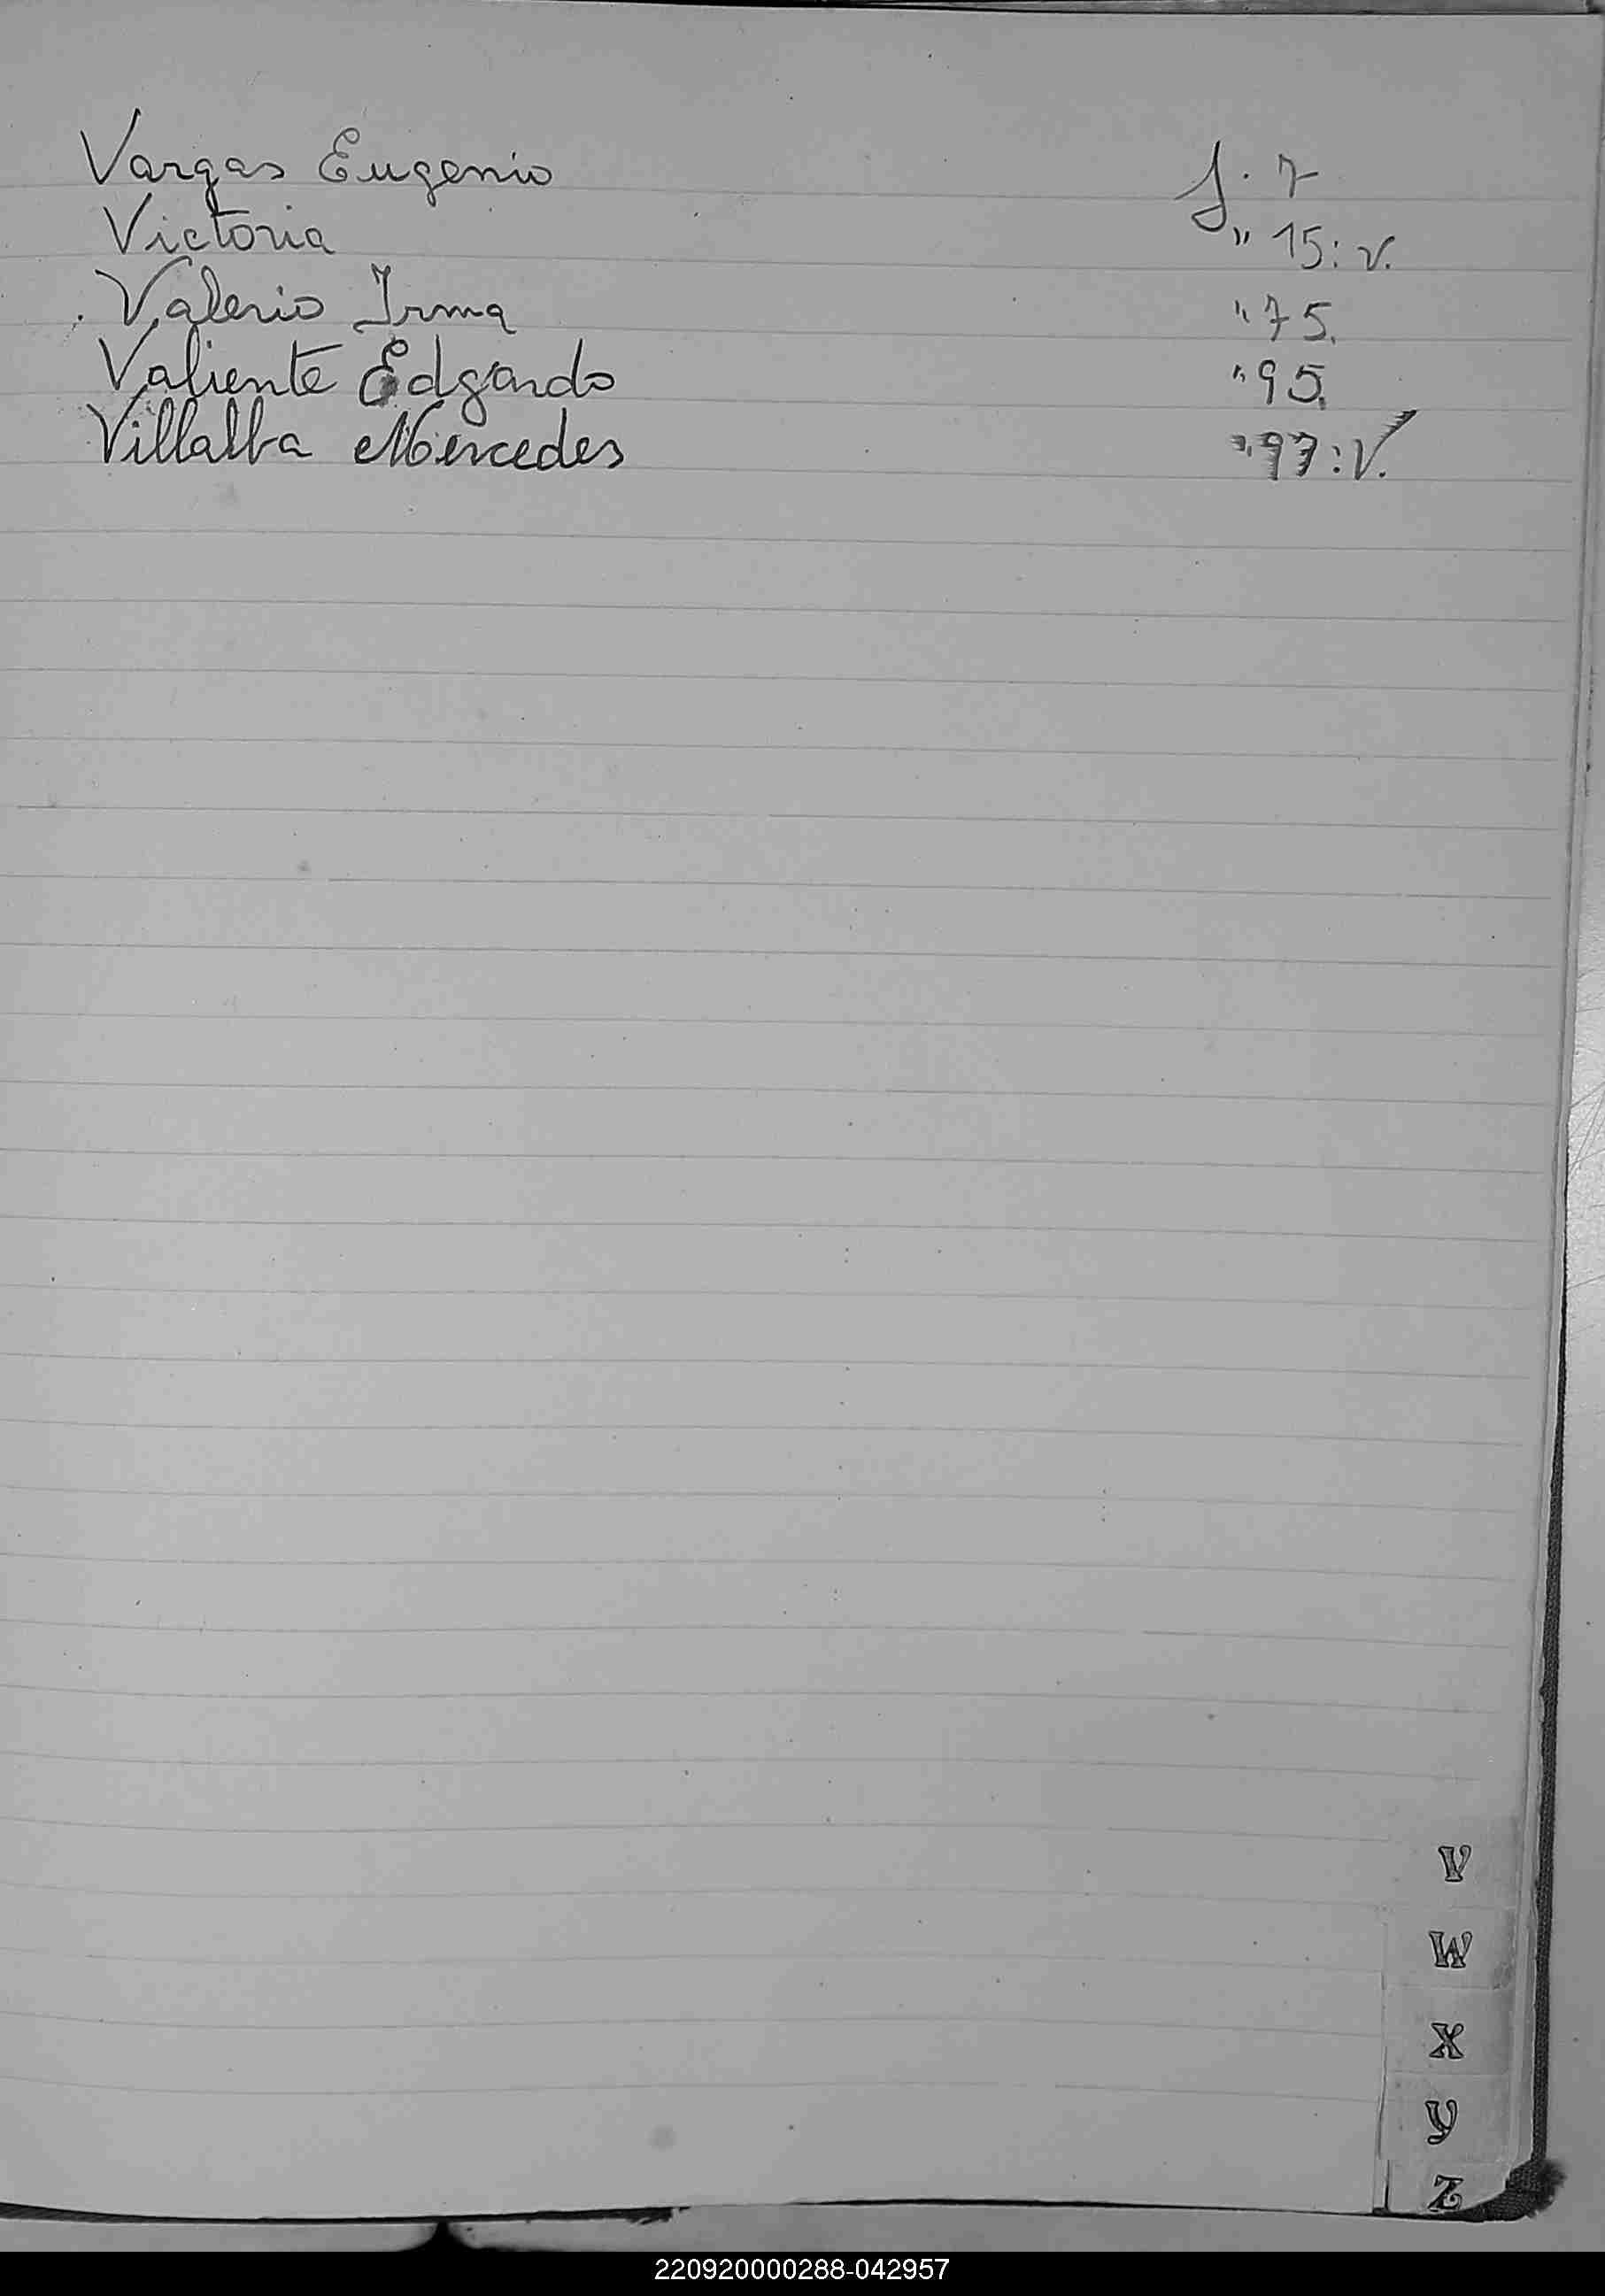 Vargas Eugenio f. 7
Victoria " 15: v.
Valerio Irma " 75.
Valiente Edgardo " 95.
Villalba Mercedes " 97: V.
V
W
X
Y
Z
220920000288-042957